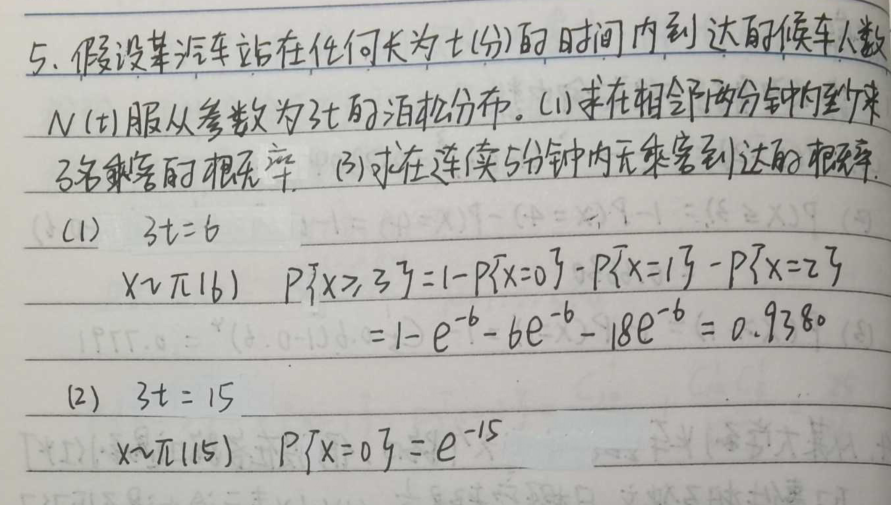 5. 假设某汽车站在任何长为t(分)的时间内到达的候车人数
N(t)服从参数为3t的泊松分布。(1)求在相邻两分钟内至少来
3名乘客的概率. (3)求在连续5分钟内无乘客到达的概率.
(1) 3t=6
X~π(6) P{X≥3}=1-P{X=0}-P{X=1}-P{X=2}
=1-e^{-6}-6e^{-6}-18e^{-6}=0.9380
(2) 3t=15
X~π(15) P{X=0}=e^{-15}